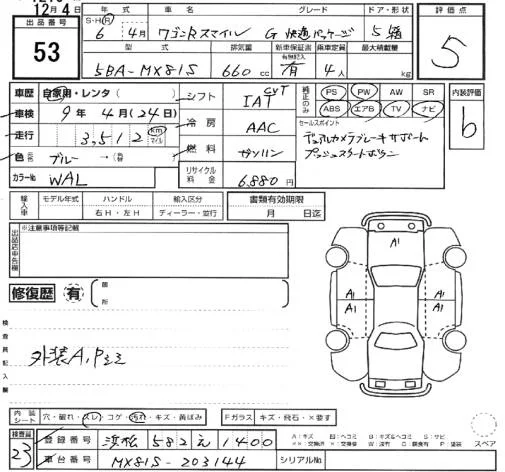 12月4日
出品番号
53
年式 車名 グレード ドア・形状
S・H・R 6年 4月 ワゴンRスマイル G 快適パッケージ 5 箱
型式 排気量 新車保証書 乗車定員 最大積載量
有無記入
5BA-MX81S 660cc 有 4人 kg
評価点
5
車歴 自家用・レンタ( )
車検 9年 4月(24日)
走行 3,512 km マイル
色 ブルー →
カラーNo WAL
シフト IAT CVT
冷房 AAC
燃料 ガソリン
リサイクル料金 6,880円
純正のみ
PS PW AW SR
ABS エアB TV ナビ
内装評価
b
セールスポイント
デュアルカメラブレーキサポート
プッシュスタートボタン
輸入車 モデル年式 ハンドル 輸入区分 書類有効期限
右H・左H ディーラー・並行 月 日迄
出品店申告欄
※注意事項等記載
修復歴 有 箇所
検査員記入欄
外装A,Pミミ
A1
A1 A1
A1
内装シート 穴・破れ・スレ・コゲ・汚れ・キズ・黄ばみ Fガラス キズ・飛石・×要す
検査員
23
登録番号 浜松 582 え 1400
車台番号 MX81S-203144
シリアルNo
A:キズ U:ヘコミ B:キズ&ヘコミ S:サビ
スペア